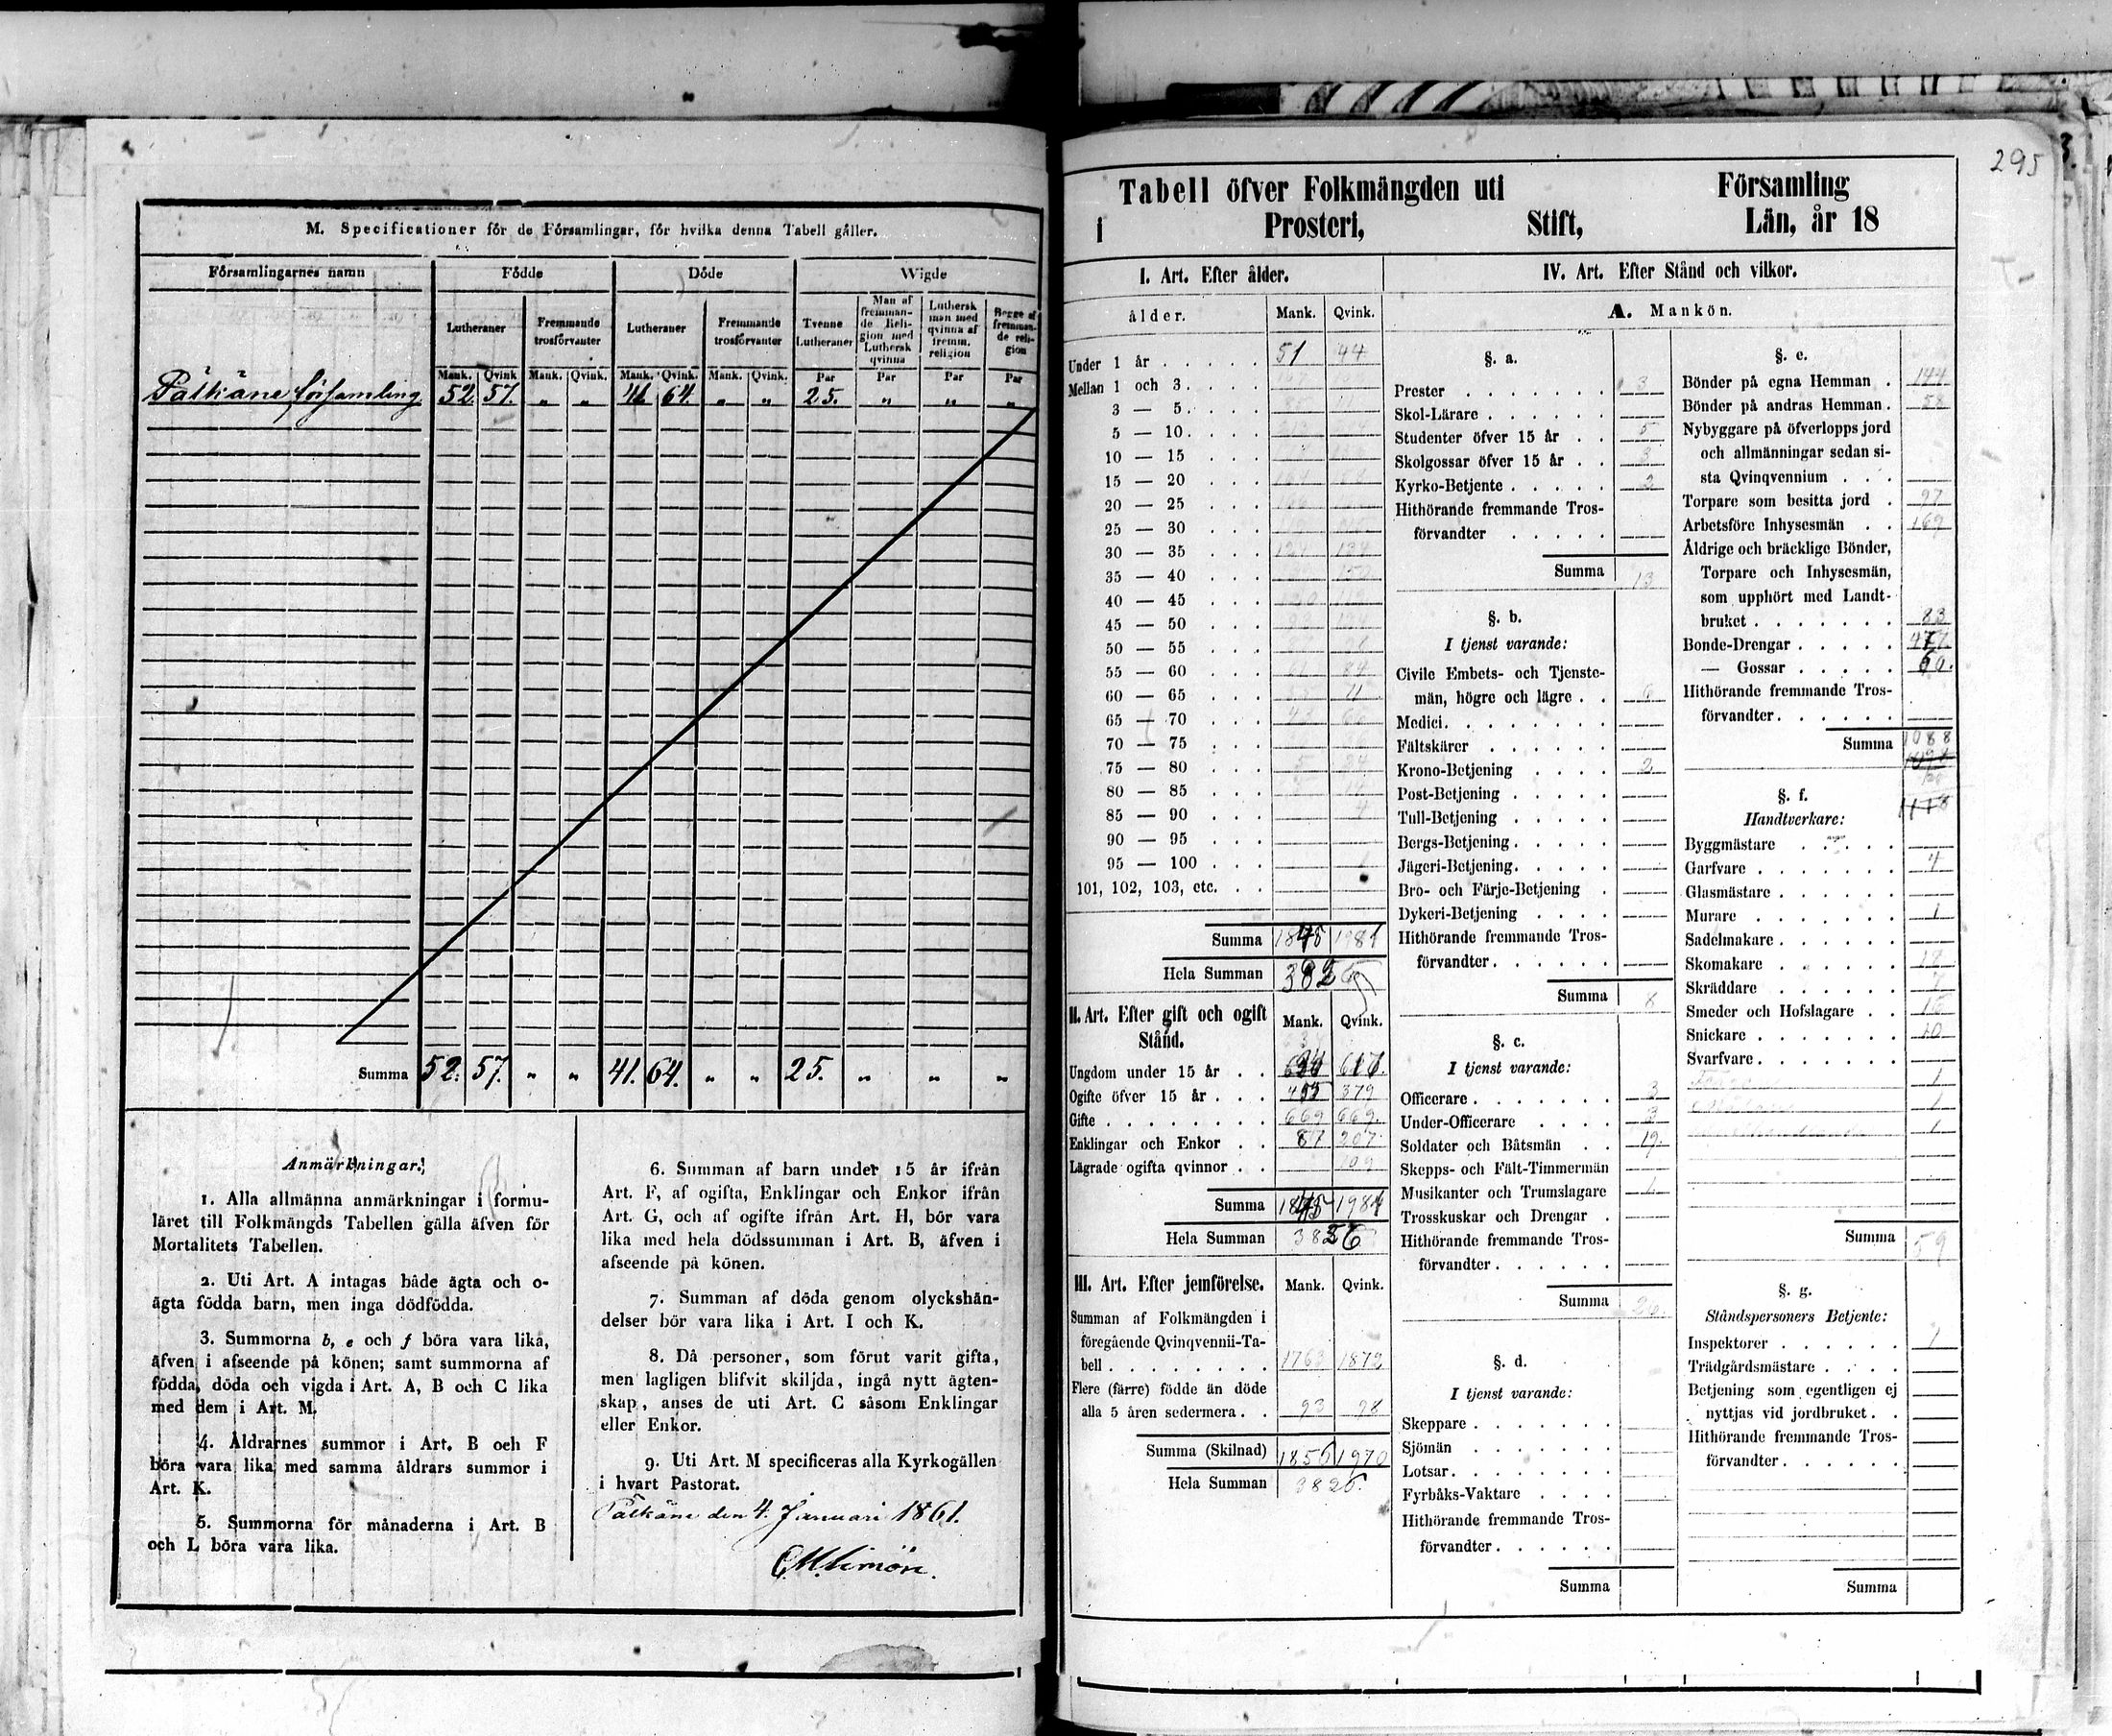 M. Specificationer för de Församlingar, för hvilka denna Tabell gäller.
Församlingarnes namn Födde Döde Wigde
Lutheraner Fremmande trosförvanter Lutheraner Fremmande trosförvanter Tvenne Lutheraner Man af fremmande Religion med Luthersk qvinna Luthersk man med qvinna af fremm. religion Begge af fremmande religion
Mank. Qvink Mank. Qvink. Mank. Qvink. Mank. Qvink. Par Par Par Par
Pälkäne församling 52. 57. „ „ 41 64. „ „ 25. „ „ „
Summa 52. 57. „ „ 41. 64. „ „ 25. „ „ „
Anmärkningar.
1. Alla allmänna anmärkningar i formu-
läret till Folkmängds Tabellen gälla äfven för
Mortalitets Tabellen.
2. Uti Art. A intagas både ägta och o-
ägta födda barn, men inga dödfödda.
3. Summorna b, e och f böra vara lika,
äfven i afseende på könen; samt summorna af
födda, döda och vigda i Art. A, B och C lika
med dem i Art. M.
4. Åldrarnes summor i Art. B och F
böra vara lika med samma åldrars summor i
Art. K.
5. Summorna för månaderna i Art. B
och L böra vara lika.
6. Summan af barn under 15 år ifrån
Art. F, af ogifta, Enklingar och Enkor ifrån
Art. G, och af ogifte ifrån Art. H, bör vara
lika med hela dödssumman i Art. B, äfven i
afseende på könen.
7. Summan af döda genom olyckshän-
delser bör vara lika i Art. I och K.
8. Då personer, som förut varit gifta,
men lagligen blifvit skiljda, ingå nytt ägten-
skap, anses de uti Art. C såsom Enklingar
eller Enkor.
9. Uti Art. M specificeras alla Kyrkogällen
i hvart Pastorat.
Pälkäne den 4. Januari 1861.
295
Tabell öfver Folkmängden uti Församling
i Prosteri, Stift, Län, år 18
I. Art. Efter ålder.
ålder. Mank. Qvink.
Under 1 år 51 44
Mellan 1 och 3
3 — 5
5 — 10
10 — 15
15 — 20
20 — 25
25 — 30
30 — 35 134
35 — 40
40 — 45
45 — 50
50 — 55
55 — 60 61 84
60 — 65
65 — 70
70 — 75
75 — 80 5
80 — 85
85 — 90 4
90 — 95
95 — 100
101, 102, 103, etc.
Summa 1845 1981
Hela Summan 3826
II. Art. Efter gift och ogift Mank. Qvink.
Stånd.
Ungdom under 15 år 617.
Ogifte öfver 15 år 379
Gifte 669 669.
Enklingar och Enkor 87 207
Lägrade ogifta qvinnor 109
Summa 1845 1981
Hela Summan 3826
III. Art. Efter jemförelse. Mank. Qvink.
Summan af Folkmängden i
föregående Qvinqvennii-Ta-
bell 1763 1872
Flere (färre) födde än döde
alla 5 åren sedermera 93 98
Summa (Skilnad) 1856 1970
Hela Summan 3826.
IV. Art. Efter Stånd och vilkor.
A. Mankön.
§. a.
Prester 3
Skol-Lärare
Studenter öfver 15 år 5
Skolgossar öfver 15 år 3
Kyrko-Betjente 2
Hithörande fremmande Tros-
förvandter
Summa 13
§. b.
I tjenst varande:
Civile Embets- och Tjenste-
män, högre och lägre 6
Medici
Fältskärer
Krono-Betjening 2
Post-Betjening
Tull-Betjening
Bergs-Betjening
Jägeri-Betjening
Bro- och Färje-Betjening
Dykeri-Betjening
Hithörande fremmande Tros-
förvandter
Summa 8
§. c.
I tjenst varande:
Officerare 3
Under-Officerare 3
Soldater och Båtsmän 19.
Skepps- och Fält-Timmermän
Musikanter och Trumslagare 1
Trosskuskar och Drengar
Hithörande fremmande Tros-
förvandter
Summa 26.
§. d.
I tjenst varande:
Skeppare
Sjömän
Lotsar
Fyrbåks-Vaktare
Hithörande fremmande Tros-
förvandter
Summa
§. e.
Bönder på egna Hemman 144
Bönder på andras Hemman 58
Nybyggare på öfverlopps jord
och allmänningar sedan si-
sta Qvinqvennium
Torpare som besitta jord 97
Arbetsföre Inhysesmän 169
Åldrige och bräcklige Bönder,
Torpare och Inhysesmän,
som upphört med Landt-
bruket 83
Bonde-Drengar 477.
— Gossar 60.
Hithörande fremmande Tros-
förvandter
Summa 1088
§. f.
Handtverkare:
Byggmästare
Garfvare 4
Glasmästare
Murare 1
Sadelmakare
Skomakare
Skräddare 7
Smeder och Hofslagare
Snickare 10
Svarfvare
1
1
1
Summa 59
§. g.
Ståndspersoners Betjente:
Inspektorer 1
Trädgårdsmästare
Betjening som egentligen ej
nyttjas vid jordbruket
Hithörande fremmande Tros-
förvandter
Summa